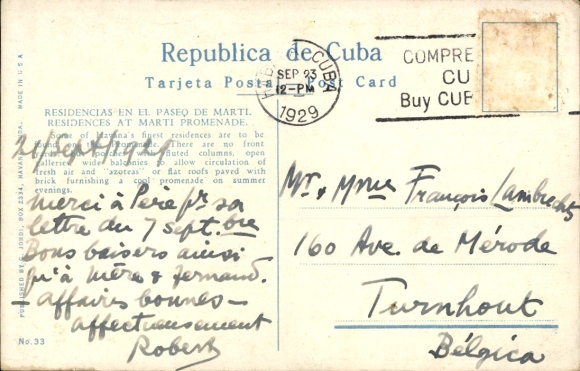 Republica de Cuba
Tarjeta Postal Post Card
CUBA
SEP 23
12-PM
1929
COMPRE
CU
Buy CUB
RESIDENCIAS EN EL PASEO DE MARTI.
RESIDENCES AT MARTI PROMENADE.
Some of Havana's finest residences are to be
found on Promenade. There are no front
porches with fluted columns, open
galleries, wide balconies to allow circulation of
fresh air and "azoteas" or flat roofs paved with
brick furnishing a cool promenade on summer
evenings.
21 Sept/1929
Merci à Père pr sa
lettre du 7 Sept.bre
Bons baisers ainsi
qu'à Mère & Fernand.
— affaires bonnes —
affectueusement
Robert
Mr. & Mme François Lambrechts
160 Ave. de Mérode
Turnhout
Bélgica
PUBLISHED BY C. JORDI, BOX 2334, HAVANA, CUBA. MADE IN U.S.A.
No. 33